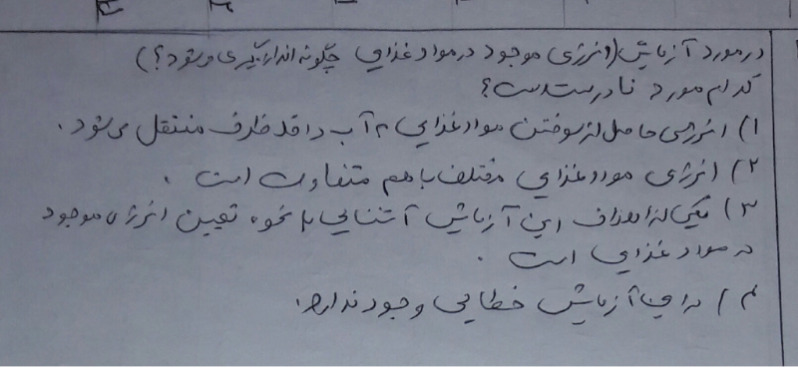 در مورد آزمایش (انرژی موجود در مواد غذایی چگونه اندازه‌گیری می‌شود؟)
کدام مورد نادرست است؟
۱) انرژی حاصل از سوختن مواد غذایی به آب داخل ظرف منتقل می‌شود.
۲) انرژی مواد غذایی مختلف با هم متفاوت است.
۳) یکی از اهداف این آزمایش آشنایی با نحوه تعیین انرژی موجود
در مواد غذایی است.
۴) در این آزمایش خطایی وجود ندارد.